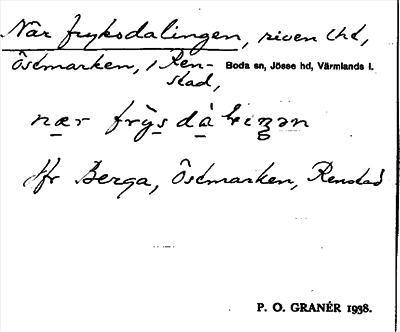 När fryksdalingen, riven thd,
Östmarken, i Ren-
stad, Boda sn, Jösse hd, Värmlands l.
nær
Jfr Berga, Östmarken, Renstad
P. O. GRANÉR 1938.